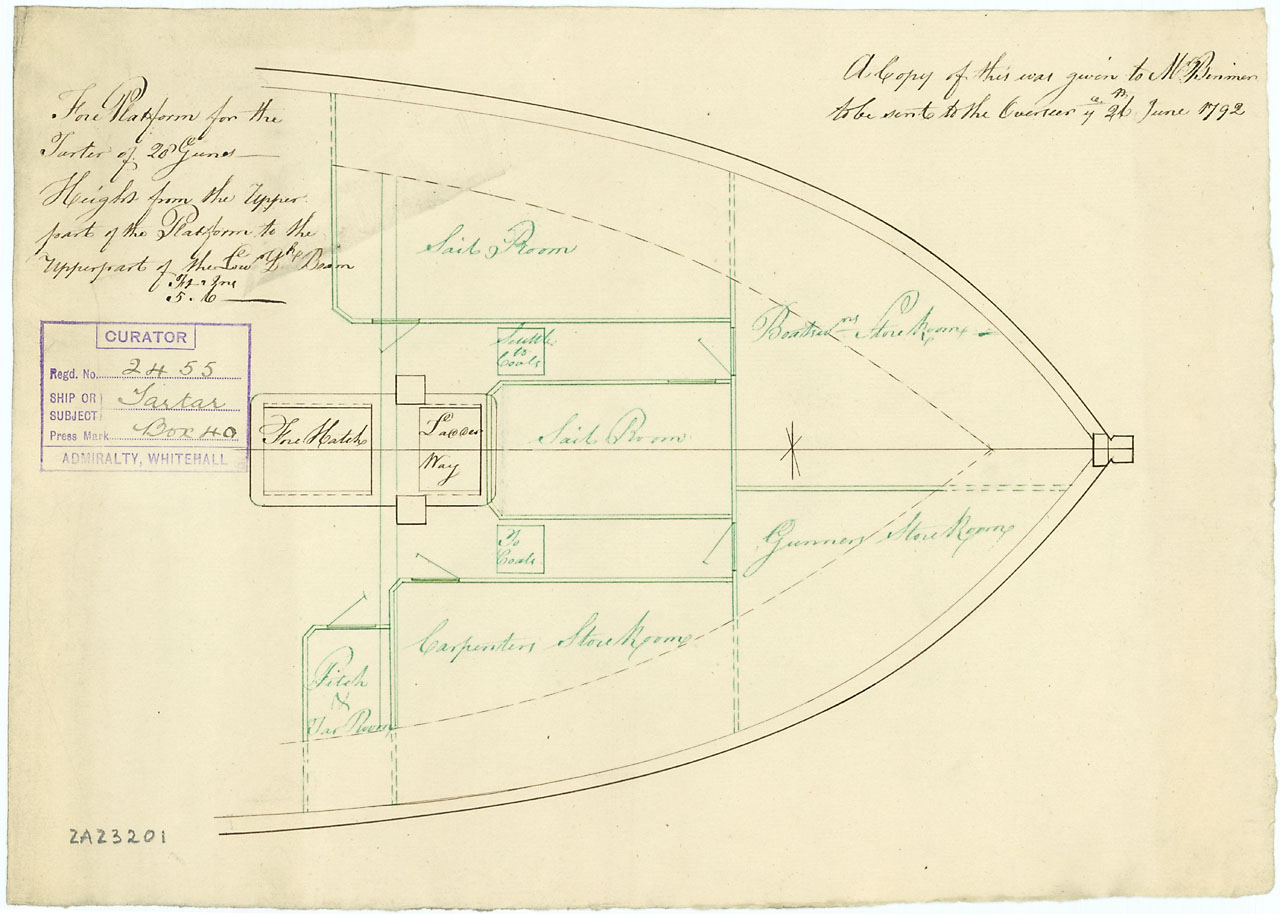 Fore Platform for the
Tarter of 28 Guns
Height from the Upper
part of the Platform to the
Upperpart of the Low Dk Beam
Ft Ins
5.6
A Copy of this was given to Mr
to be sent to the Overseer ye 26th June 1792
CURATOR
Regd. No. 2455
SHIP OR SUBJECT Tartar
Press Mark Box 40
ADMIRALTY, WHITEHALL
Sail Room
Scuttle
to
Coals
Boatswns Store Room
Fore Hatch
Ladder
Way
Sail Room
To
Coals
Gunners Store Room
Carpenters Store Room
Pitch
&
Tar Room
ZAZ3201